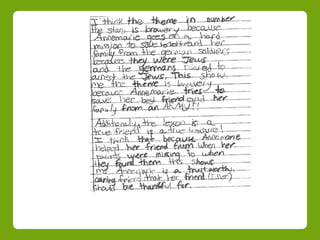 I think the theme in number
the stars is bravery because
Annemarie goes on a hard
mission to save her friend and her
family from the german soldiers
because they were Jews
and the Germans wanted to
arrest the Jews. This show
me the theme is bravery
because Annemarie tries to
save her best friend and her
family from an ARMY!!
Additionally, the lesson is a
true friend is a true treasure!
I think that because Annemarie
helped her friend even when her
parents were missing to when
they found them this shows
me Annemarie is a trustworthy,
caring friend that her friend
should be thankful for.